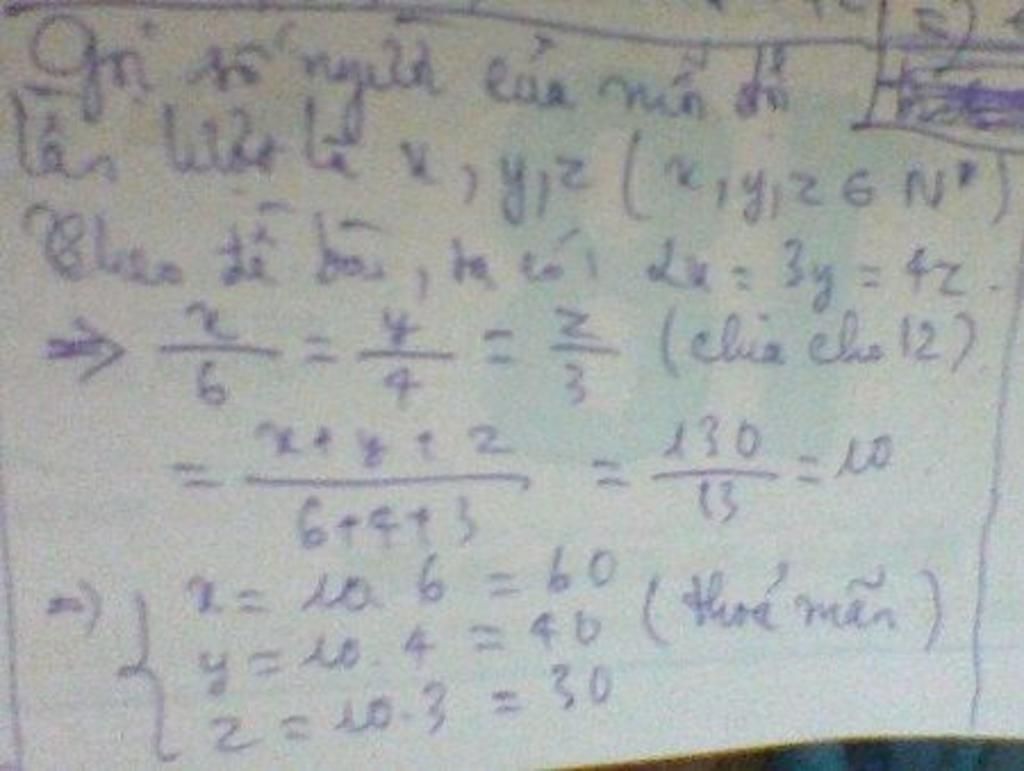 Gọi số người của mỗi đội
lần lượt là x, y, z ( x, y, z ∈ N* )
Theo đề bài, ta có: 2x = 3y = 4z.
=> x/6 = y/4 = z/3 (chia cho 12)
= x + y + z / 6+4+3 = 130/13 = 10
=> { x = 10. 6 = 60
y = 10. 4 = 40 ( thoả mãn )
z = 10.3 = 30